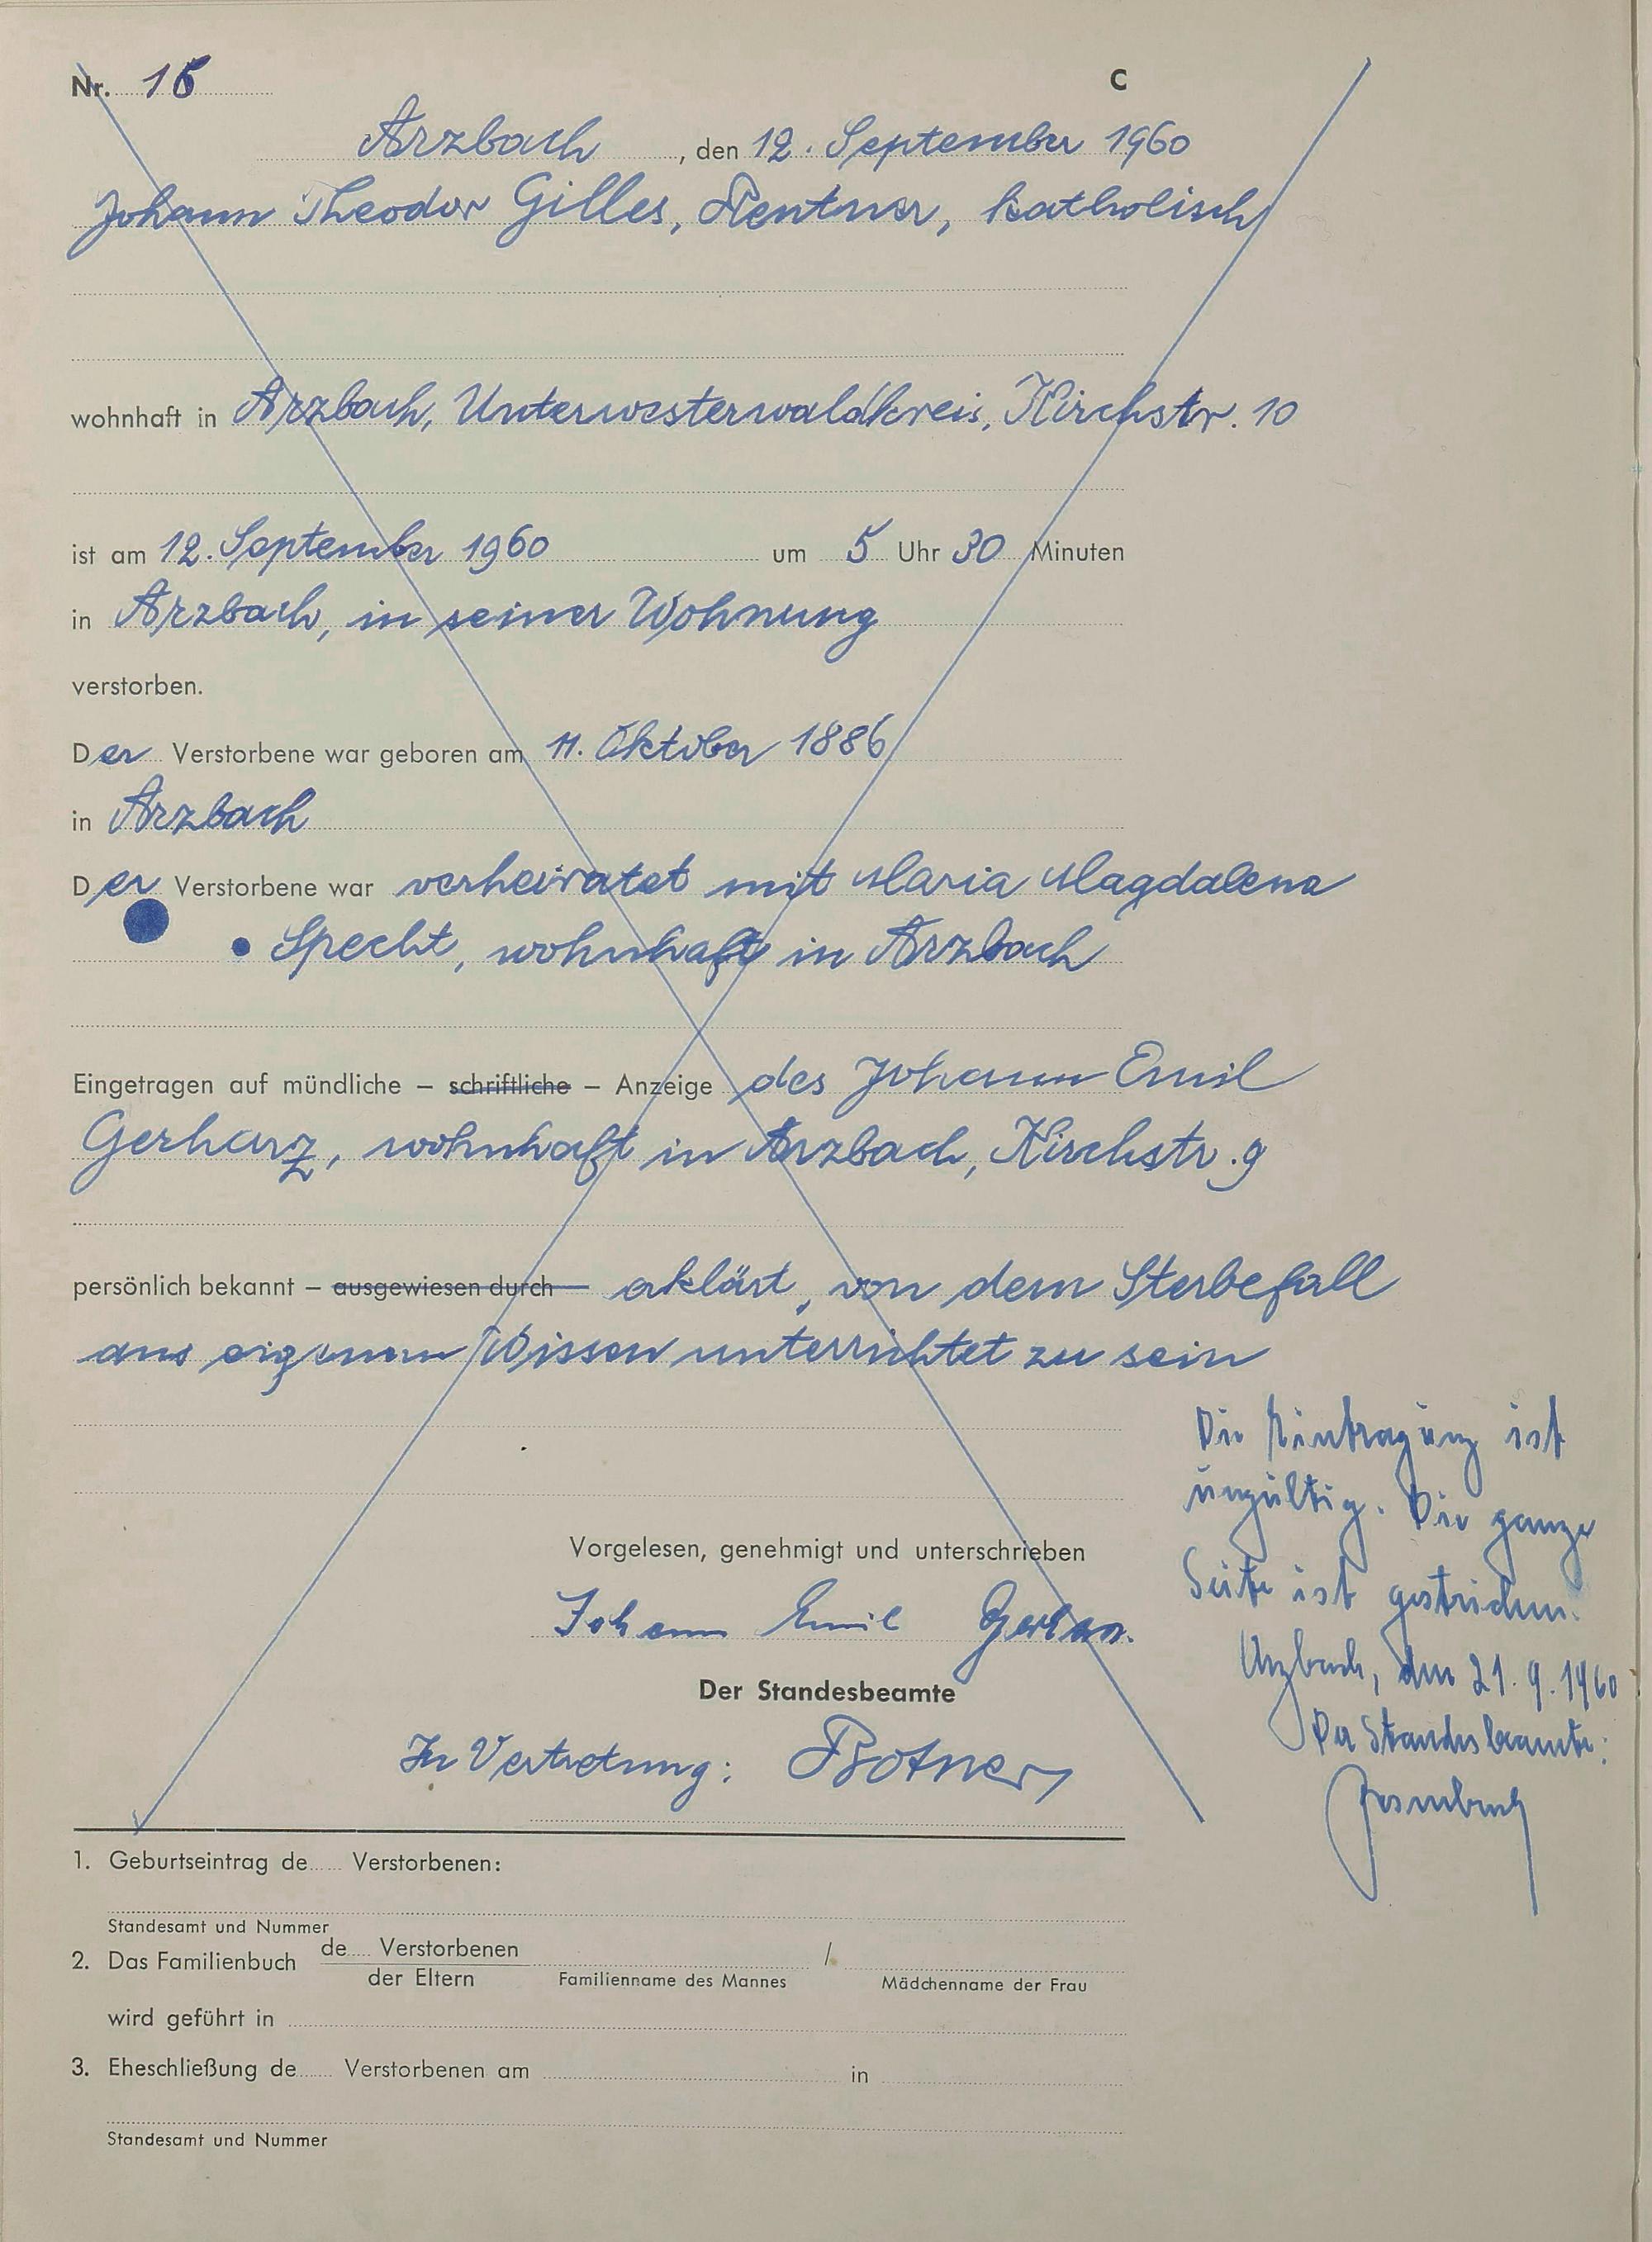 Nr. 15 C
Arzbach, den 12. September 1960
Johann Theodor Gilles, Rentner, katholisch
wohnhaft in Arzbach, Unterwesterwaldkreis, Kirchstr. 10
ist am 12. September 1960 um 5 Uhr 30 Minuten
in Arzbach, in seiner Wohnung
verstorben.
Der Verstorbene war geboren am 11. Oktober 1886
in Arzbach
Der Verstorbene war verheiratet mit Maria Magdalena
Specht, wohnhaft in Arzbach
Eingetragen auf mündliche – schriftliche – Anzeige des Johann Emil
Gerharz, wohnhaft in Arzbach, Kirchstr. 9
persönlich bekannt – ausgewiesen durch erklärt, von dem Sterbefall
aus eigenem Wissen unterrichtet zu sein
Die Eintragung ist
ungültig. Die ganze
Seite ist gestrichen.
Arzbach, den 21. 9. 1960
Der Standesbeamte:
Vorgelesen, genehmigt und unterschrieben
Johann Emil Gerharz
Der Standesbeamte
In Vertretung:
1. Geburtseintrag de Verstorbenen:
Standesamt und Nummer
2. Das Familienbuch de Verstorbenen /
der Eltern Familienname des Mannes Mädchenname der Frau
wird geführt in
3. Eheschließung de Verstorbenen am in
Standesamt und Nummer